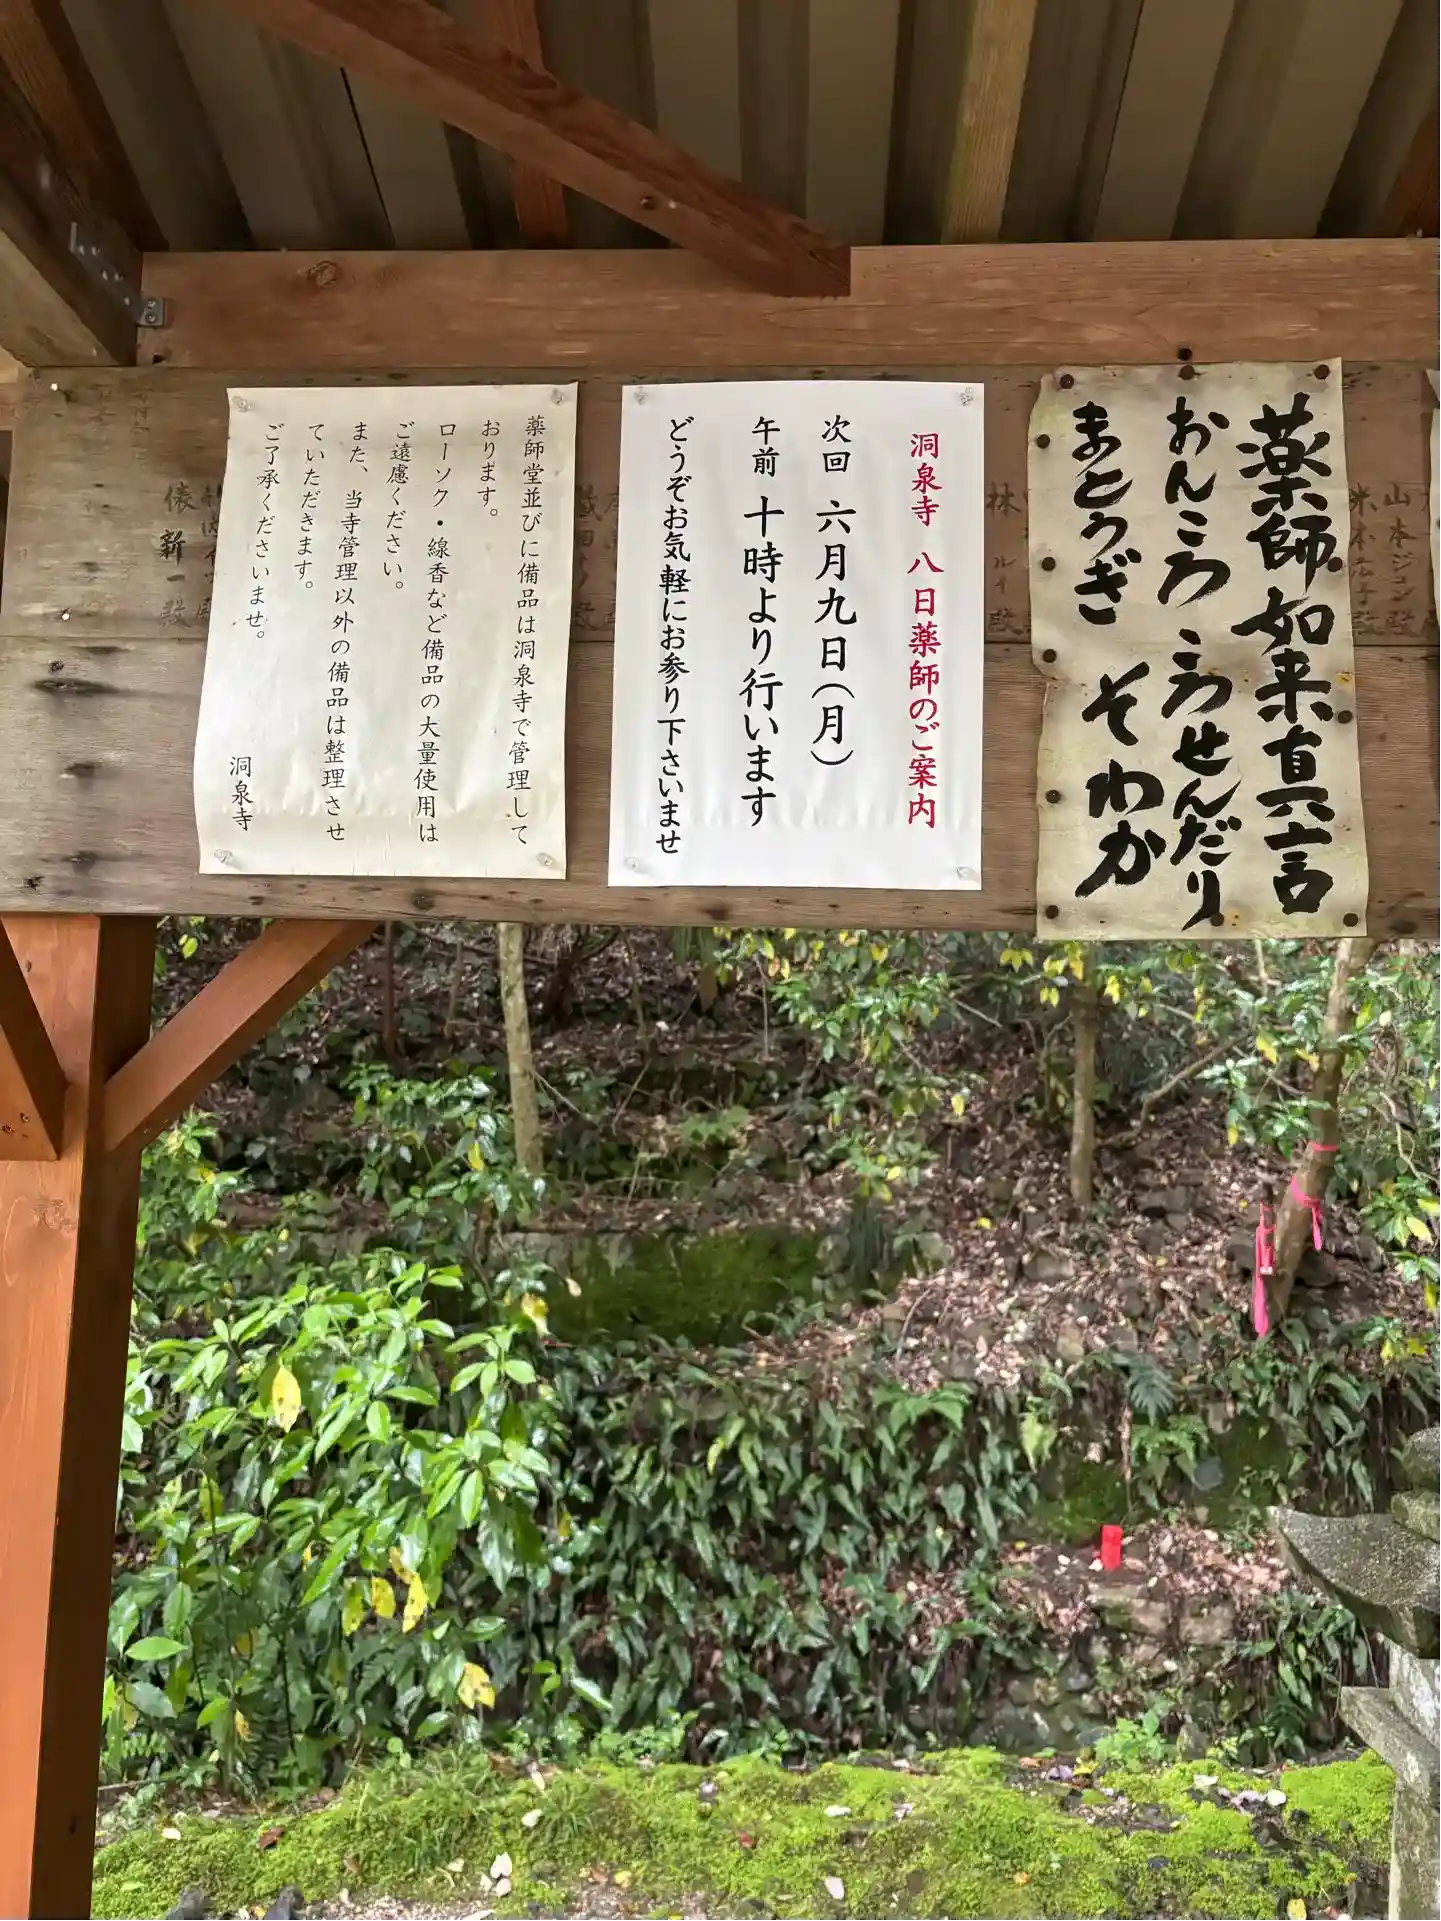 薬師如来真言
おんころ ころせんだり
まとうぎ そわか
洞泉寺 八日薬師のご案内
次回 六月九日(月)
午前 十時より行います
どうぞお気軽にお参り下さいませ
薬師堂並びに備品は洞泉寺で管理して
おります。
ローソク・線香など備品の大量使用は
ご遠慮ください。
また、当寺管理以外の備品は整理させ
ていただきます。
ご了承くださいませ。
洞泉寺
山本ジヨン殿
林 ルイ殿
俵 新一殿